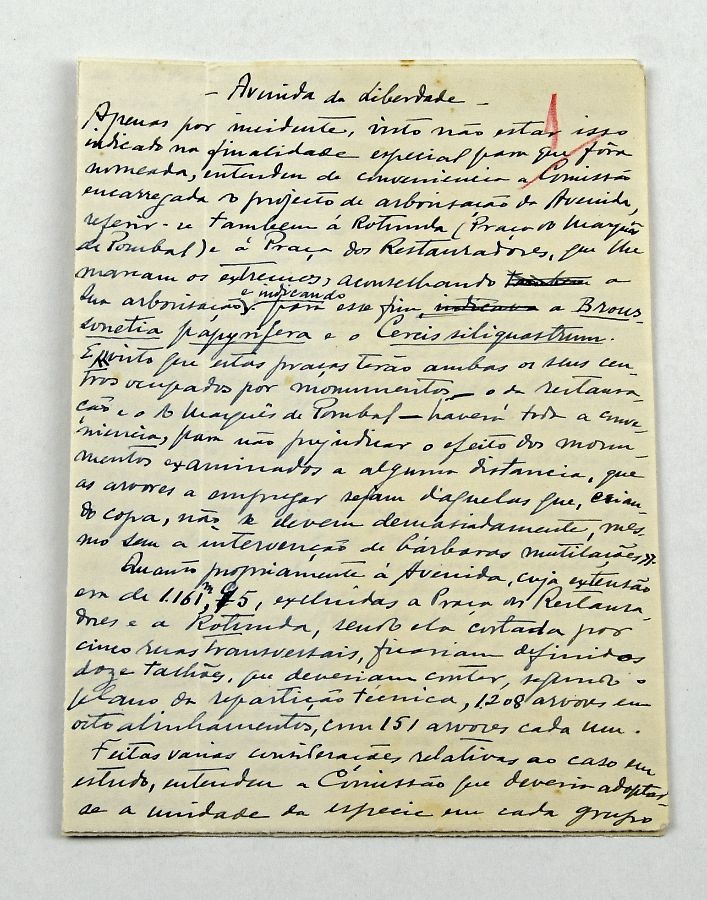 - Avenida da Liberdade -
Apenas por incidente, visto não estar isso
indicado na finalidade especial para que fôra
nomeada, entendeu de conveniencia a Comissão
encarregada do projecto de arborisação da Avenida,
referir-se tambem á Rotunda (Praça do Marquês
de Pombal) e á Praça dos Restauradores, que lhe
marcam os extremos, aconselhando tambem a
sua arborisação e indicando para esse fim, indicava a Brous-
sonetia papyrifera e o Cercis siliquastrum.
visto que estas praças terão ambas os seus cen-
tros ocupados por monumentos — o da restaura-
ção e o do Marquês de Pombal — haverá toda a conve-
niencia, para não prejudicar o efeito dos monu-
mentos examinados a alguma distancia, que
as arvores a empregar sejam d'aquelas que, crian-
do copa, não se devem demasiadamente, mes-
mo sem a intervenção de bárbaras mutilações".
Quanto propriamente á Avenida, cuja extensão
era de 1.161,m 75, excluidas a Praça dos Restaura-
dores e a Rotunda, sendo ela cortada por
cinco ruas transversais, ficariam definidos
doze talhões, que deveriam conter, segundo o
plano da repartição técnica, 1208 arvores em
oito alinhamentos, com 151 arvores cada um.
Feitas varias considerações relativas ao caso em
estudo, entendeu a Comissão que deveria adoptar-
se a unidade da especie em cada grupo